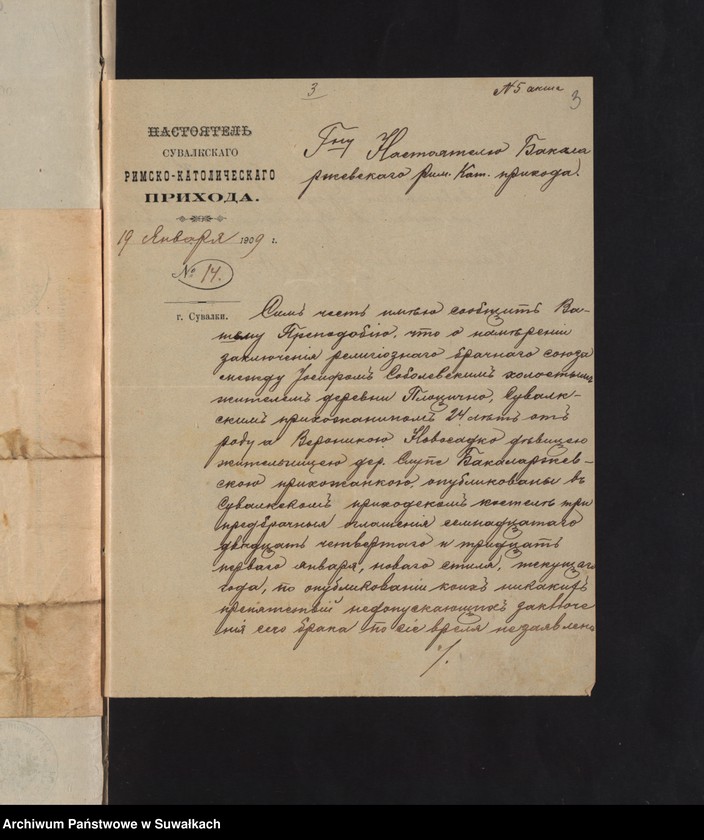 3
N 5 акт
3
НАСТОЯТЕЛЬ
СУВАЛКСКАГО
РИМСКО-КАТОЛИЧЕСКАГО
ПРИХОДА.
19 Января 1909 г.
№ 14.
г. Сувалки.
Гну Настоятелю Бакала
ржевскаго Рим. Кат. прихода.
Симъ честь имѣю сообщить Ва-
шему Преподобію, что о намѣреніи
заключенія религіознаго брачнаго союза
между Іосифомъ Соболевскимъ холостымъ
жителемъ деревни Плоцично, Сувалк-
скимъ прихожаниномъ 24 лѣтъ отъ
роду а Вероникою Новосадко дѣвицею
жительницею дер. Слупе Бакаларжев-
скою прихожанкою, опубликованы въ
Сувалкскомъ приходскомъ костелѣ три
предбрачныя оглашенія семнадцатаго
двадцать четвертаго и тридцать
перваго января, новаго стиля, текущаго
года, по опубликованіи коихъ никакихъ
препятствій недопускающихъ заключе
нія сего брака по сіе время незаявлено
./.
Archiwum Państwowe w Suwałkach